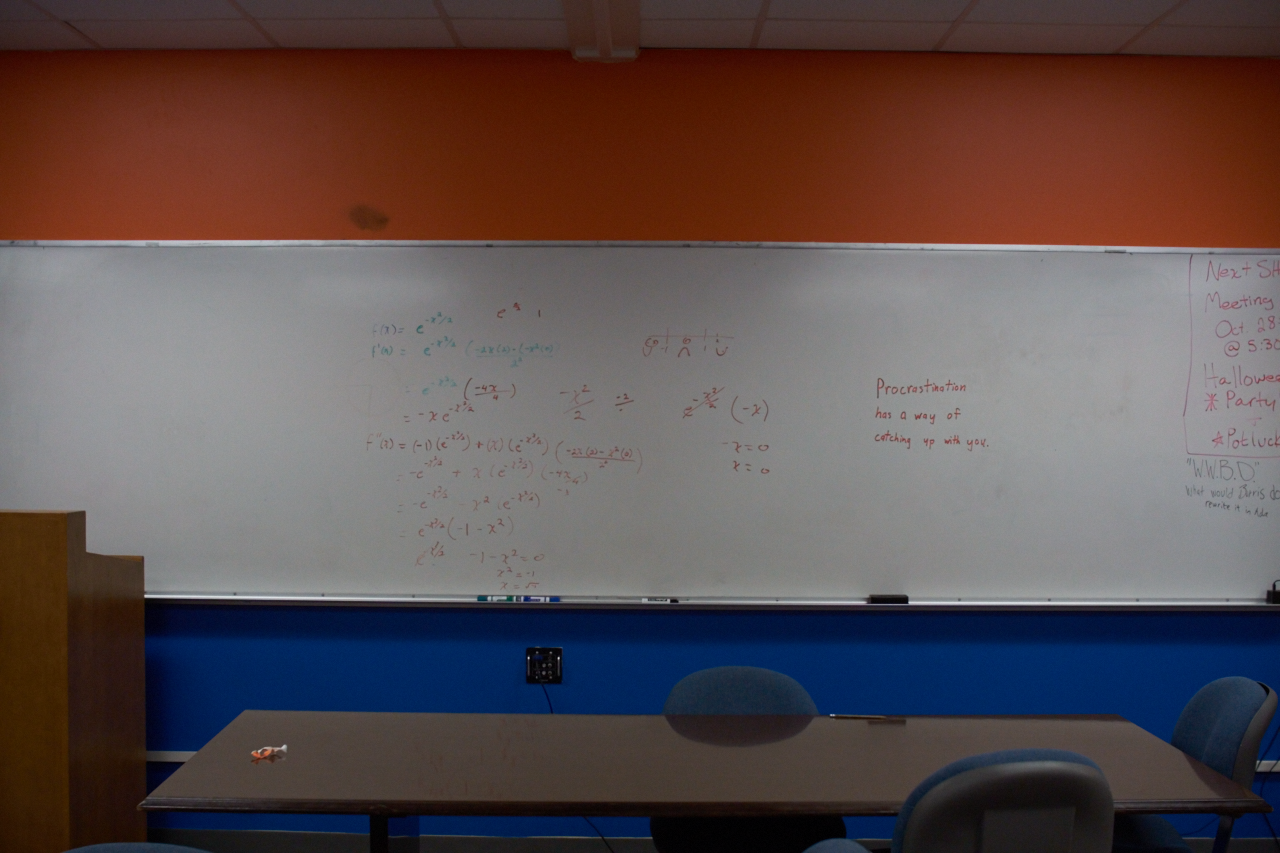 f(x) = e^{-x²/2}
e^{-x²/2} (-2x(2) - (-x²(0)) / 2²
e^{-x²/2} (-4x/4)
= -xe^{-x²/2}
f''(x) = (-1)(e^{-x²/2}) + (x)(e^{-x²/2}) (-2x(2) - x²(0) / 2²)
= -e^{-x²/2} + x(e^{-x²/2})(-4x/4)
-x
= -e^{-x²/2} - x²(e^{-x²/2})
= e^{-x²/2}(-1 - x²)
-1 - x² = 0
x² = -1
-x²/2
e^{-x²/2} (-x)
-x = 0
x = 0
Procrastination
has a way of
catching up with you.
Next SH
Meeting
Oct. 28
@ 5:30
Hallowe
* Party
* Potluck
"W.W.B.D."
What would do
rewrite it in